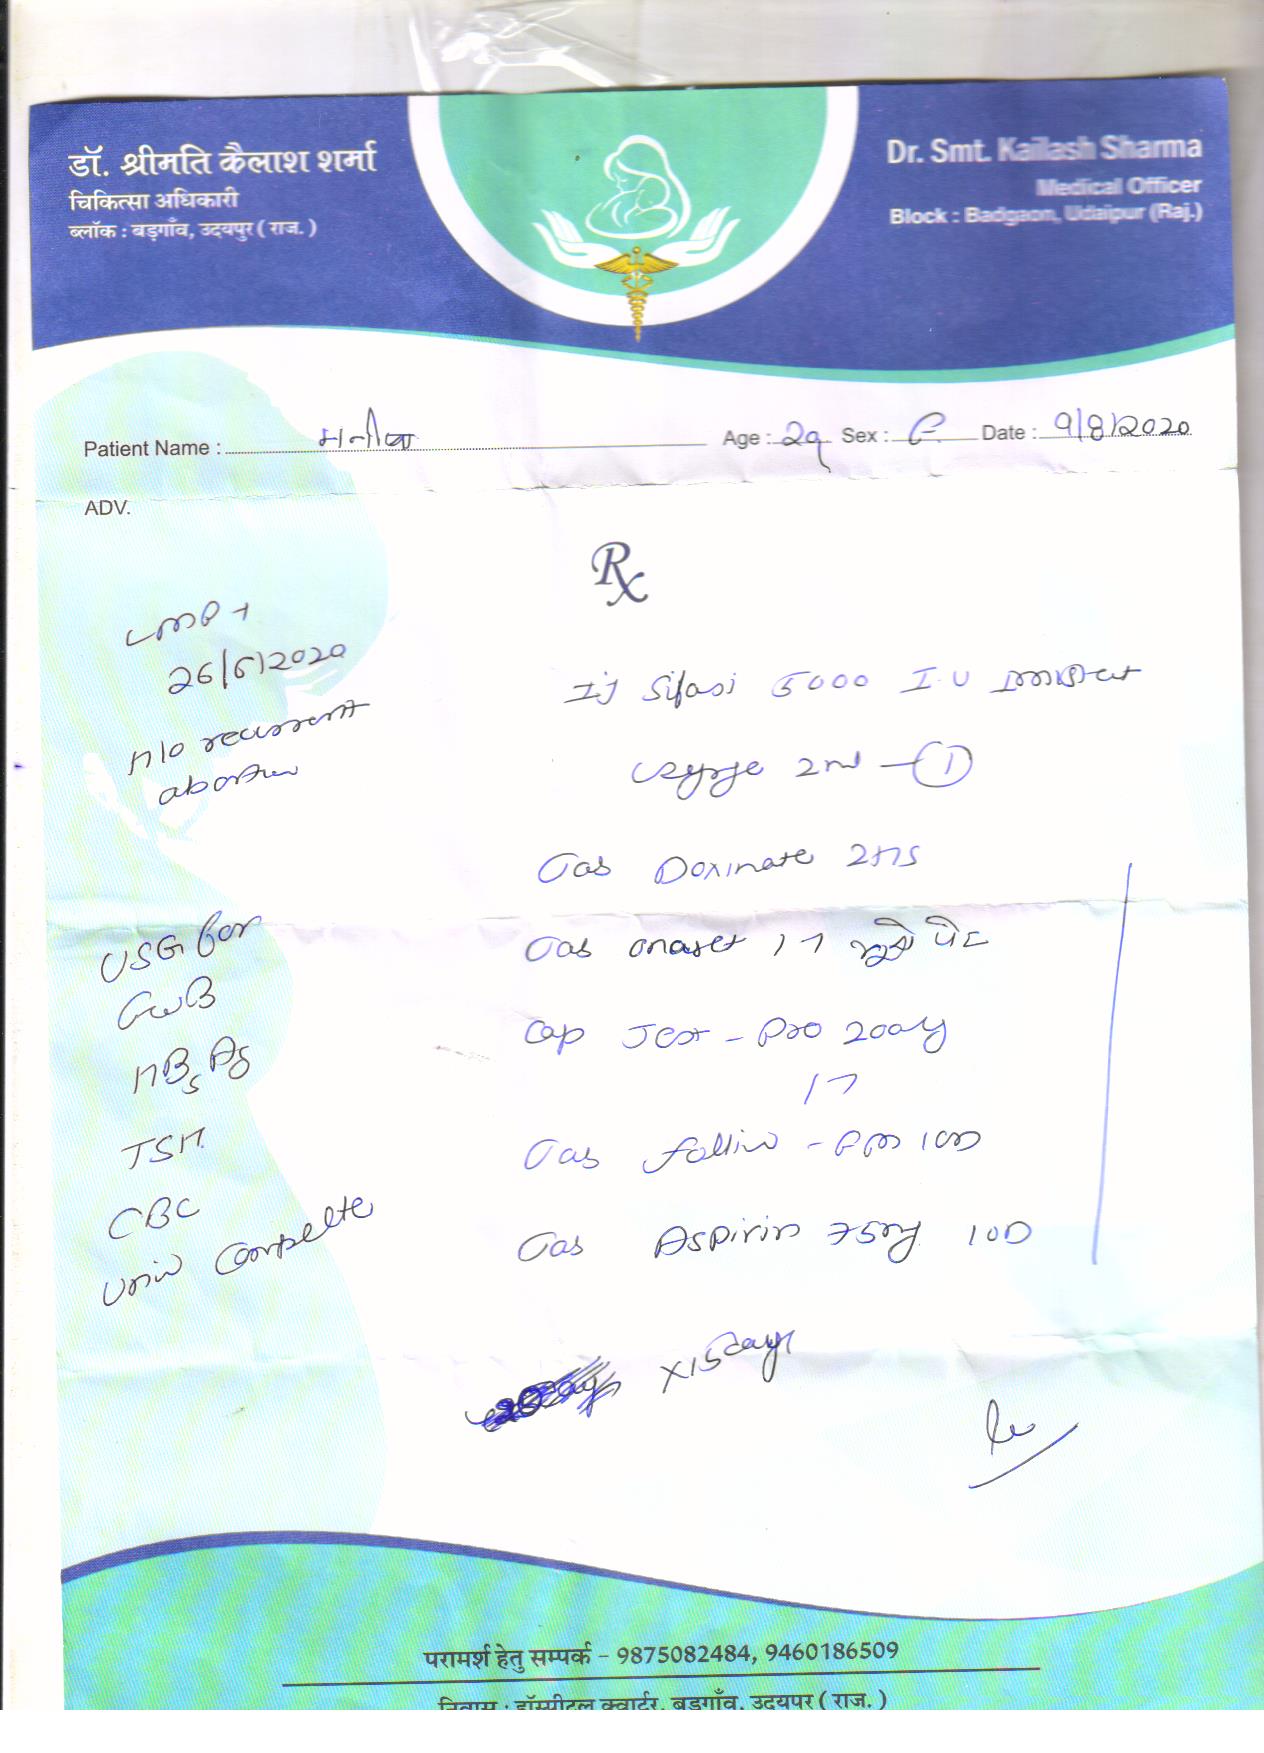 डॉ. श्रीमति कैलाश शर्मा
चिकित्सा अधिकारी
ब्लॉक : बड़गाँव, उदयपुर ( राज. )
Dr. Smt. Kailash Sharma
Medical Officer
Block : Badgaon, Udaipur (Raj.)
Patient Name : मनीषा Age : 29 Sex : F Date : 9/8/2020
ADV.
Rx
LMP
26/6/2020
H/o recurrent
abortion
USG for
FWB
HBsAg
TSH
CBC
Urin Complete
Sifasi 5000 I.U
Syringe 2ml - 1
Tab Doxinate 2HS
Tab पेट
Cap - Pro 200mg
Tab
Tab Aspirin 75mg 1OD
x15days
परामर्श हेतु सम्पर्क – 9875082484, 9460186509
निवास : हॉस्पीटल क्वार्टर, बड़गाँव, उदयपुर ( राज. )